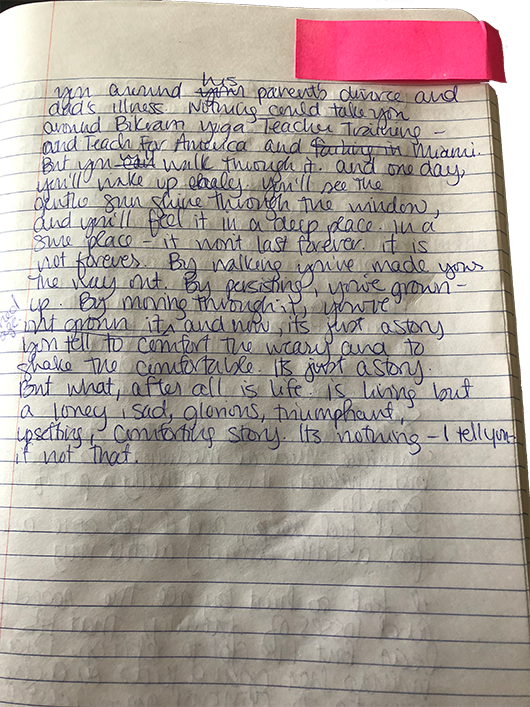 his
you around your parents divorce and
dad's illness. Nothing could take you
around Bikram yoga Teacher Training –
and Teach For America and failing in Miami.
But you could walk through it. and one day,
you'll wake up early. you'll see the
gentle sun shine through the window,
and you'll feel it in a deep place. in a
sure place – it won't last forever. it is
not forever. By walking you've made yours
the way out. By persisting, you've grown –
up. By moving through it, you've
out grown it, and now, its just a story
you tell to comfort the weary and to
shake the comfortable. Its just a story.
But what, after all is life. is living but
a loney, sad, glorious, triumphant,
upsetting, comforting story. Its nothing – I tell you –
if not that.